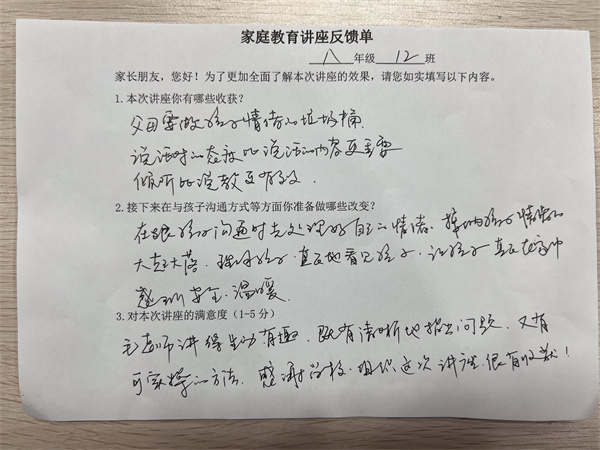 家庭教育讲座反馈单
八年级 12 班
家长朋友,您好!为了更加全面了解本次讲座的效果,请您如实填写以下内容。
1.本次讲座你有哪些收获?
父母要做孩子情绪的垃圾桶
说话时的态度比说话的内容更重要
倾听比说教更有效.
2.接下来在与孩子沟通方式等方面你准备做哪些改变?
在跟孩子沟通时先处理好自己的情绪.接纳孩子情绪的
大起大落.理解孩子.真正地看见孩子.让孩子真正在家中
感到安全.温暖.
3.对本次讲座的满意度(1-5 分)
老师讲得生动有趣.既有清晰地指出问题.又有
可家操的方法.感谢学校.组织这次讲座.很有收获!